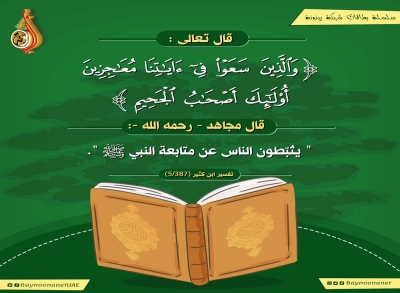 سلسلة بطاقات شبكة بينونة
قال تعالى :
﴿ وَٱلَّذِينَ سَعَوْا۟ فِىٓ ءَايَـٰتِنَا مُعَـٰجِزِينَ
أُو۟لَـٰٓئِكَ أَصْحَـٰبُ ٱلْجَحِيمِ ﴾
قال مجاهد - رحمه الله -:
" يثبّطون الناس عن متابعة النبي ﷺ ".
تفسير ابن كثير (5/387)
BaynoonanetUAE
Baynoonanet